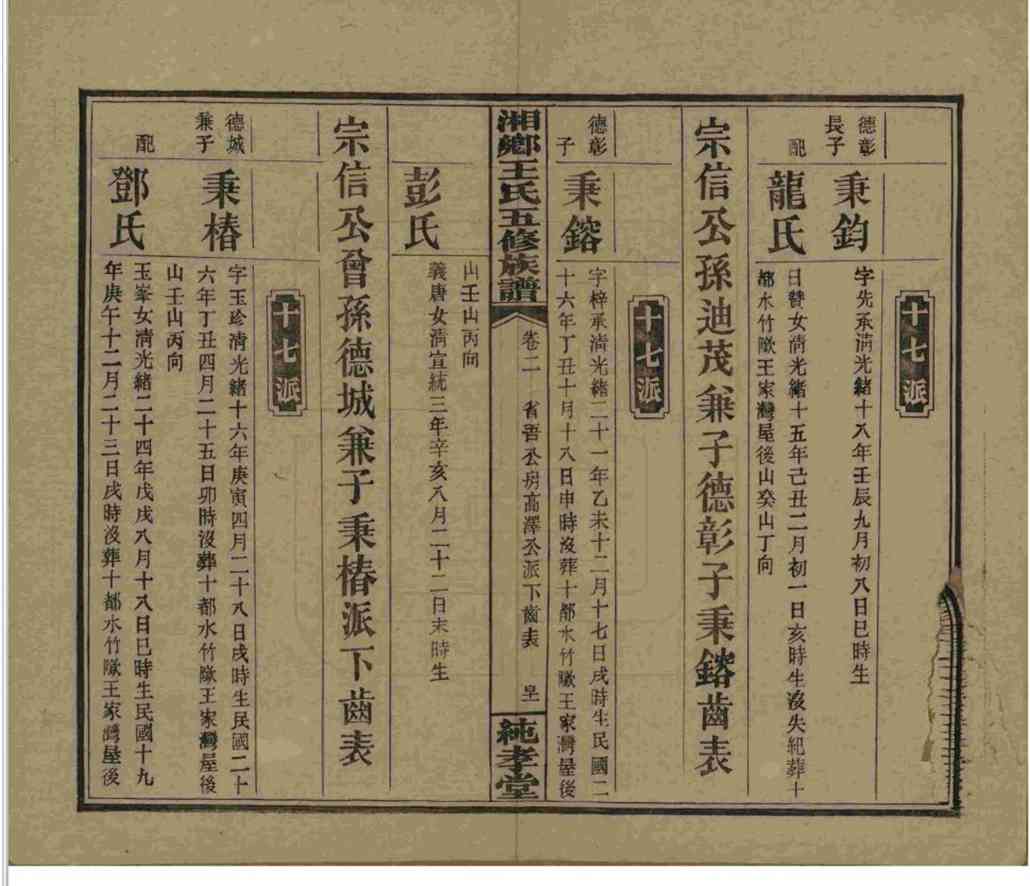 十七派
德彰長子
秉鈞
字先承清光緒十八年壬辰九月初八日巳時生
配
龍氏
日贊女清光緒十五年己丑二月初一日亥時生沒失紀葬十
都水竹墘王家灣屋後山癸山丁向
宗信公孫迪茂兼子德彰子秉鎔齒表
十七派
德彰子
秉鎔
字梓承清光緒二十一年乙未十二月十七日戌時生民國二
十六年丁丑十月十八日申時沒葬十都水竹墘王家灣屋後
湘鄉王氏五修族譜
卷二
省吾公房高澤公派下齒表
純孝堂
山壬山丙向
彭氏
義唐女清宣統三年辛亥八月二十二日未時生
宗信公曾孫德城兼子秉椿派下齒表
十七派
德城兼子
秉椿
字玉珍清光緒十六年庚寅四月二十八日戌時生民國二十
六年丁丑四月二十五日卯時沒葬十都水竹墘王家灣屋後
山壬山丙向
配
鄧氏
玉峯女清光緒二十四年戊戌八月十八日巳時生民國十九
年庚午十二月二十三日戌時沒葬十都水竹墘王家灣屋後